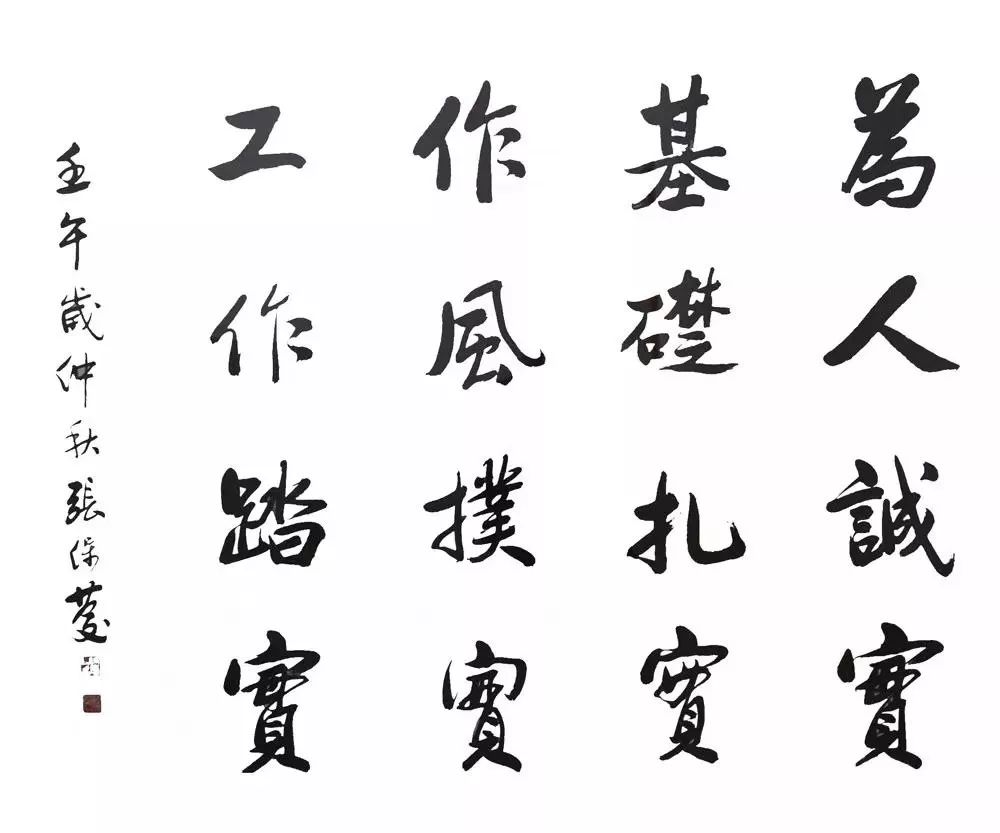 為人誠實
基礎扎實
作風撲實
工作踏實
壬午歲仲秋張保慶